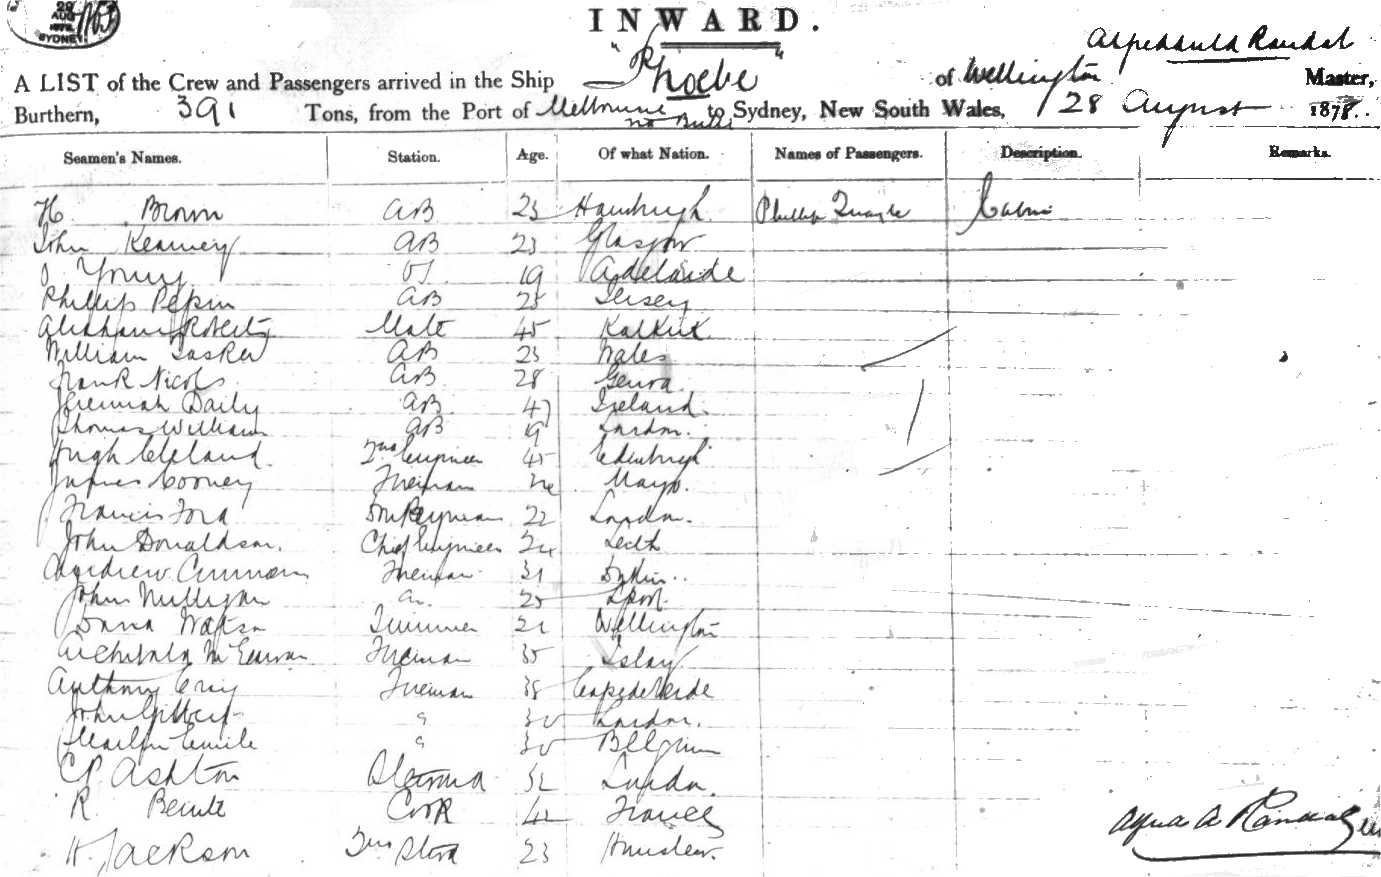 29 AUG 1878 SYDNEY
INWARD.
A LIST of the Crew and Passengers arrived in the Ship "Phoebe" of Wellington Randal Master,
Burthern, 391 Tons, from the Port of Melbourne to Sydney, New South Wales, 28 August 1878.
Seamen's Names. Station. Age. Of what Nation. Names of Passengers. Description. Remarks.
H. Brown AB 23 Hamburgh Phillip Quayle Cabin
John Kearney AB 23 Glasgow
J Young OS 19 Adelaide
Phillip Pepin AB 25 Jersey
Abraham Roberts Mate 45
William Tasker AB 23 Wales
Frank Nicols AB 28 Genoa
Jeremiah Daily AB 47 Ireland.
Thomas William AB 19 London.
Hugh Cleland. 2nd Engineer 45 Edenburgh
James Cooney Fireman Mayo.
Francis Ford Donkeyman 22 London.
John Donaldson. Chief Engineer 24 Leith
Andrew Fireman 31
John Mulligan 25 Lpool.
David Watson Trimmer 21 Wellington
Archibald McEwan Fireman 35 Islay
Anthony Fireman 38 Cape de Verde
John Gilbert " 30 London.
Emile " 30 Belgium
CP Ashton Steward 32 London.
R. Cook 42 France
H. Jackson 2nd Stewd 23